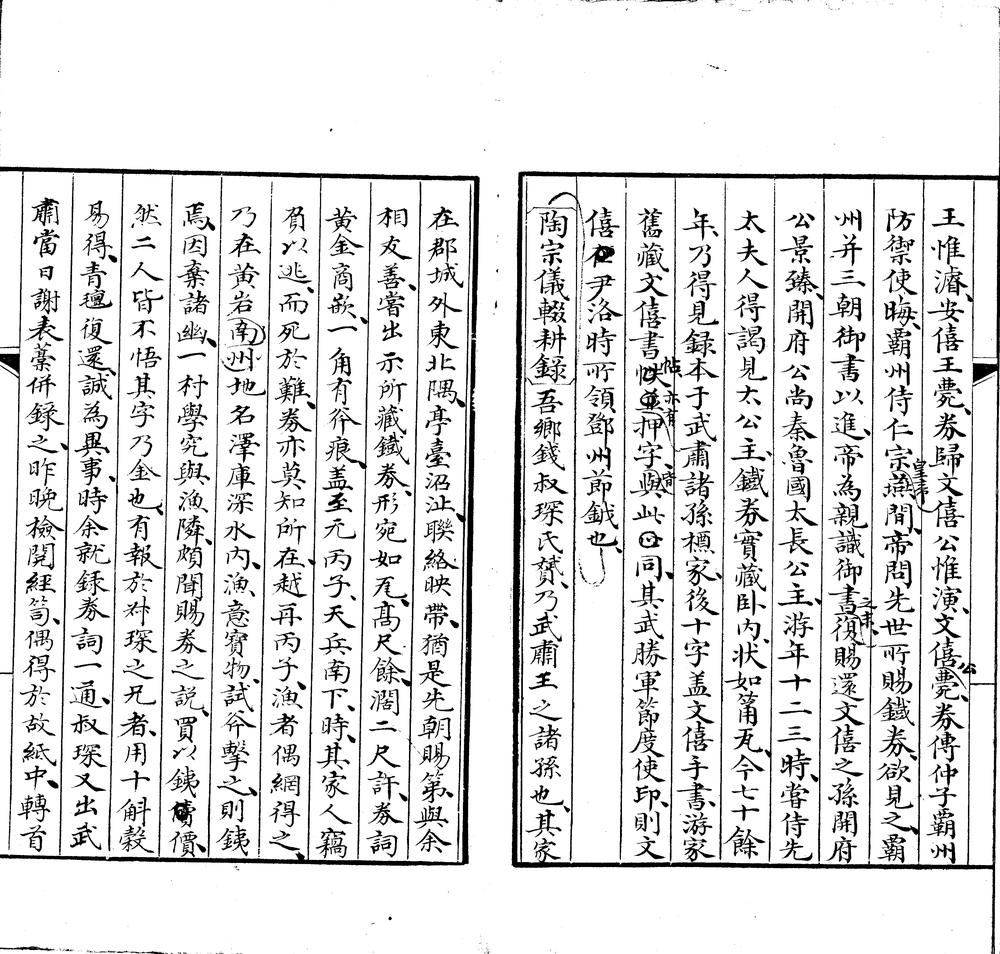 王惟濬、安僖王薨、券歸文僖公惟演、文僖公薨、券傳仲子霸州
防禦使晦、霸州侍仁宗皇帝燕間、帝問先世所賜鐵券、欲見之、霸
州并三朝御書以進、帝為親識御書之末、復賜還文僖之孫開府
公景臻、開府公尚秦魯國太長公主、游年十二三時、嘗侍先
太夫人得謁見太公主、鐵券實藏卧內、狀如筩瓦、今七十餘
年、乃得見録本于武肅諸孫櫄家、後十字蓋文僖手書、游家
舊藏文僖書帖亦有押字、皆與此同、其武勝軍節度使印、則文
僖尹洛時所領鄧州節鉞也、
陶宗儀輟耕録吾鄉錢叔琛氏贇、乃武肅王之諸孫也、其家
在郡城外東北隅、亭臺沼沚、聯絡映帶、猶是先朝賜第、與余
相友善、嘗出示所藏鐵券、形宛如瓦、高尺餘、濶二尺許、券詞
黃金商嵌、一角有斧痕、蓋至元丙子、天兵南下、時、其家人竊
負以逃、而死於難、券亦莫知所在、越再丙子、漁者偶網得之、
乃在黃岩南州地名澤庫深水內、漁意寶物、試斧擊之、則鐵
焉、因棄諸幽、一村學究與漁隣、頗聞賜券之説、買以鐵價、
然二人皆不悟其字乃金也、有報於叔琛之兄者、用十斛穀
易得、青氊復還、誠為異事、時余就録券詞一通、叔琛又出武
肅當日謝表藁併録之、昨晚檢閱經笥、偶得於故紙中、轉首